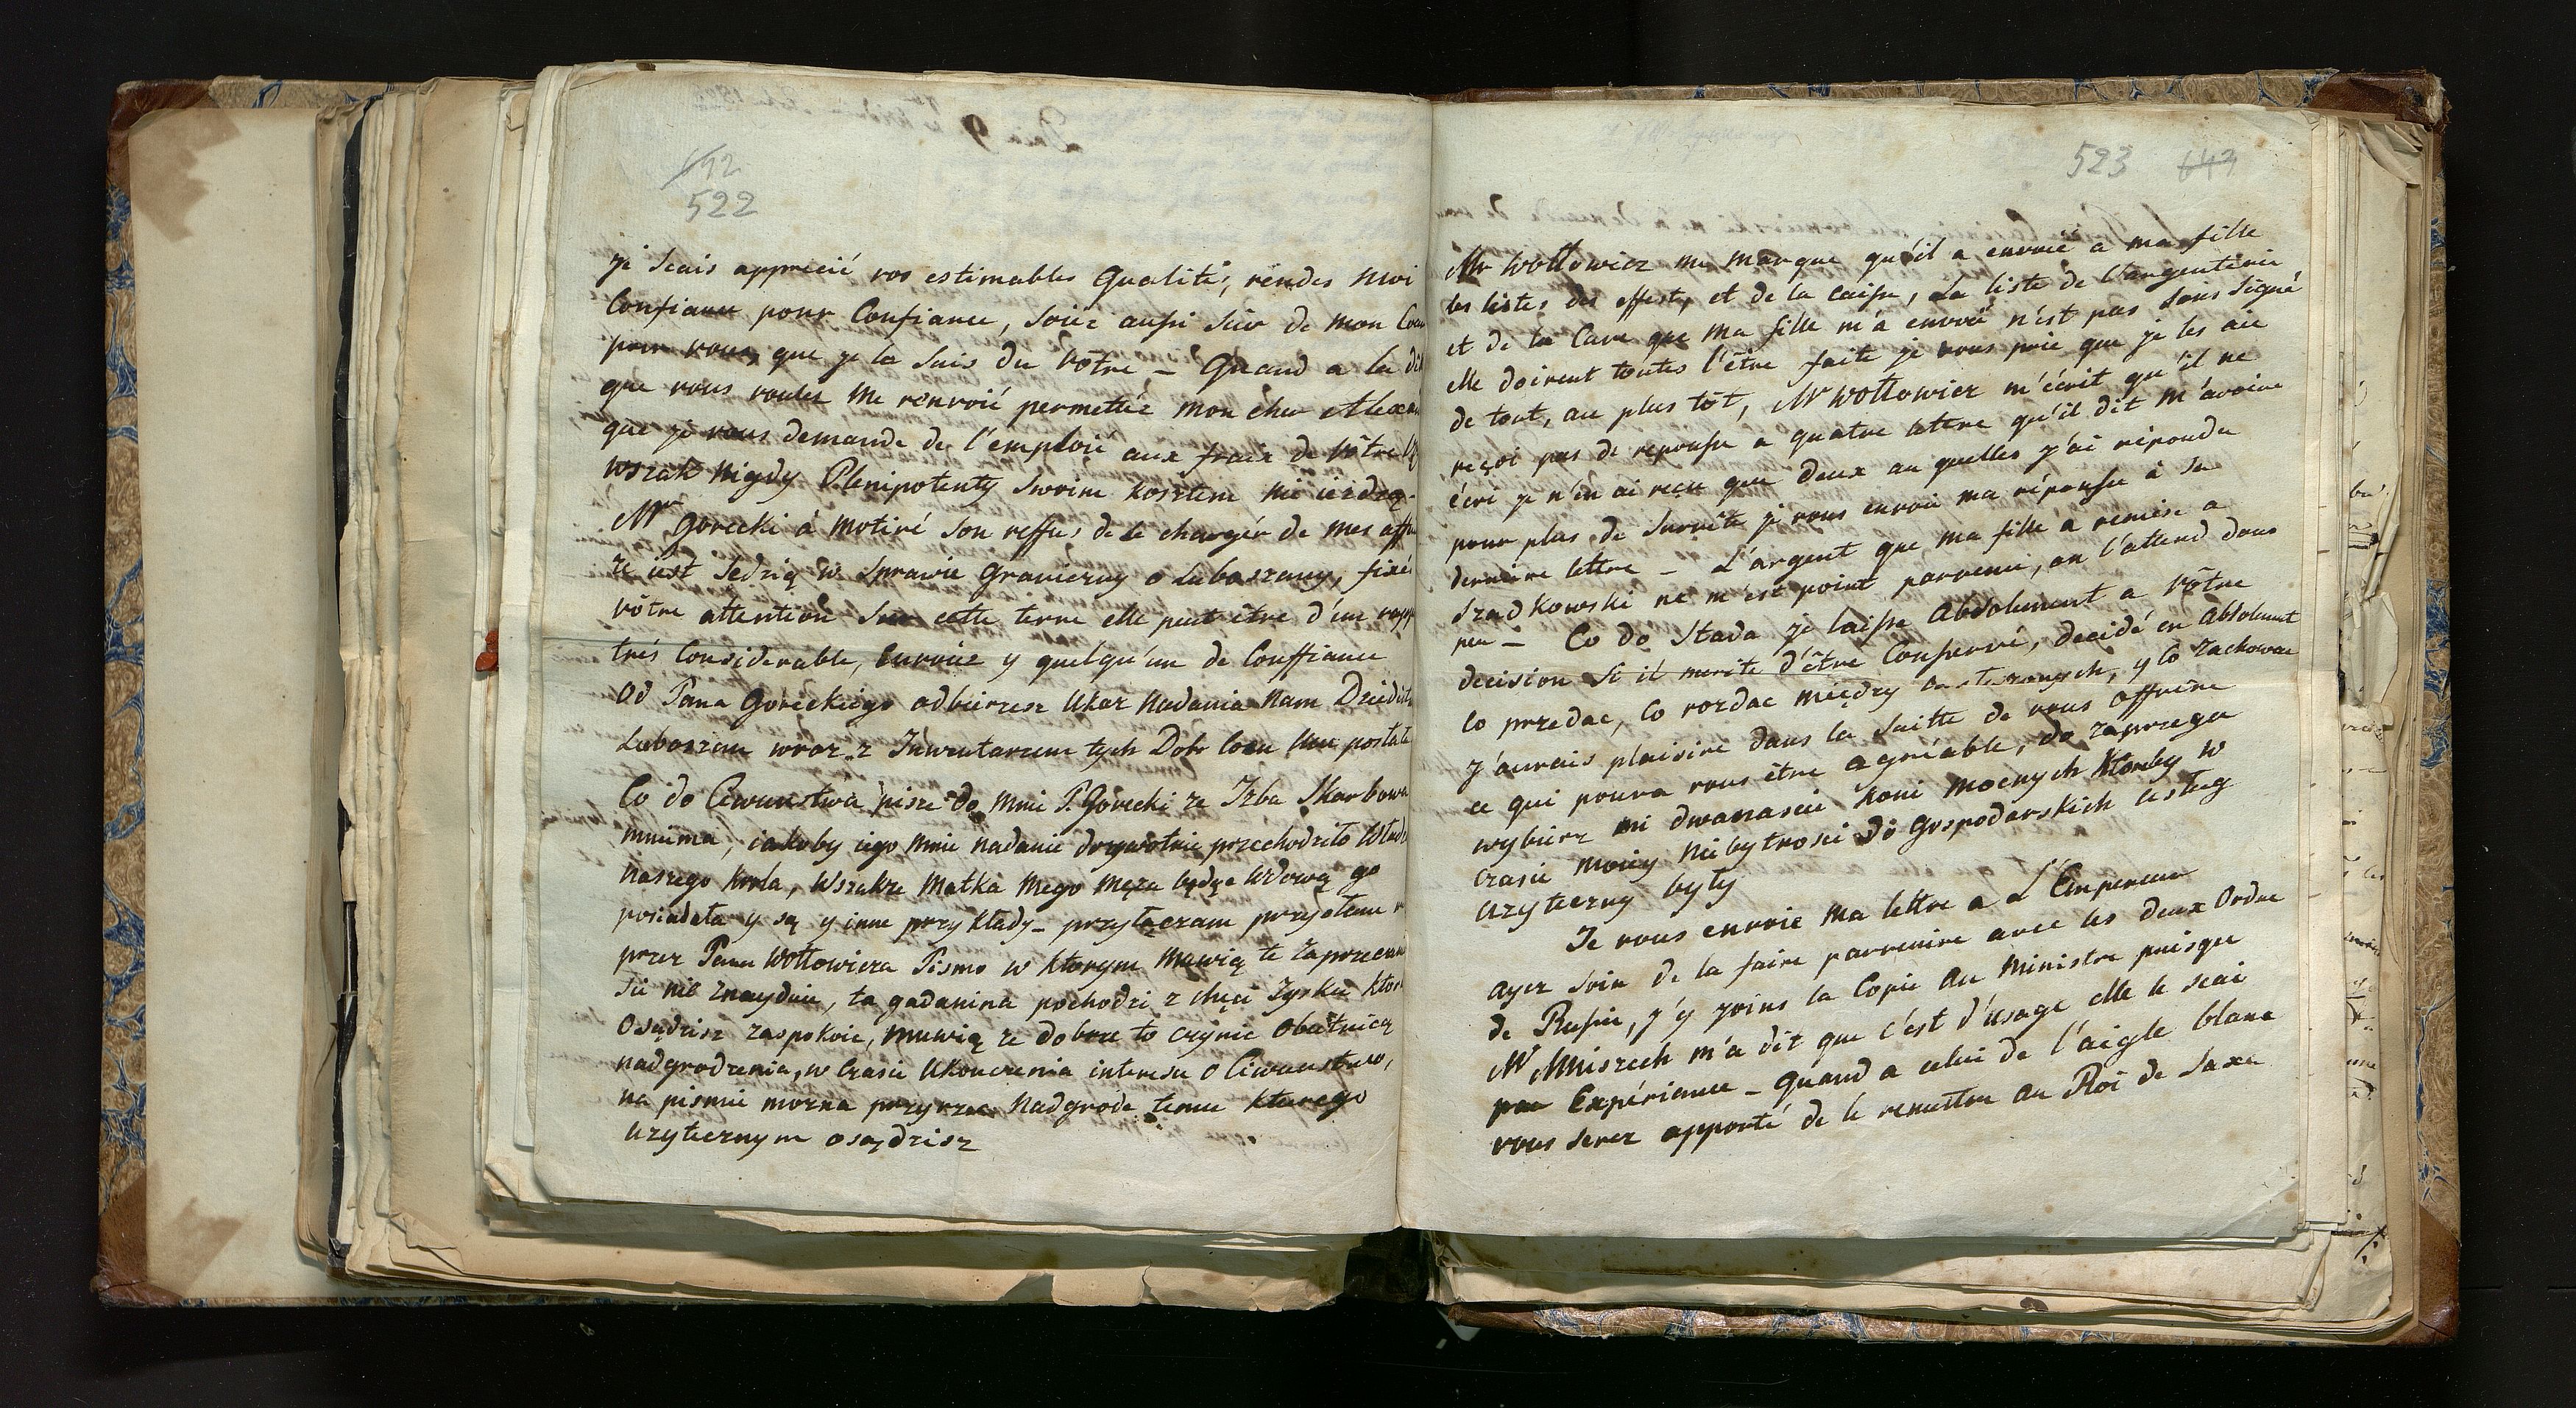 522
je scais apprecié vos estimables Qualité, rendes moi
Confiance pour Confiance, soiiez aussi sûr de mon
pour vous, que je la suis du vôtre – Quand a la
que vous voulez me renvoié permettéz mon cher
que je vous demande de l'emploié aux fraix de vôtre
wszak nigdy Plenipotenty swoim kosztem nie iezdzą.
Mr Gorecki à motivé son reffus de se chargér de mes
że iest sędzią w sprawie graniczny o Luboszany, fixéz
vôtre attention sur cette terre elle peut être d'un
très Considerable, envoiiez y quelqu'un de Conffiance
Od Pana Goreckiego odbierzesz Ukaz Nadania Nam
Luboszan wraz z Inwentarzem tych Dobr
Co do Ciwunstwa pisze do mnie P. Gorecki że Izba Skarbowa
mniema, iakoby iego mnie nadanie dożywotnie przechodziło
naszego Krola, wszakże Matka Mego Męża będąc wdową go
posiadała y są y inne przykłady – przyłączam przysłane
przez Pana Wołłowicza Pismo w ktorym mowią
się nie znayduie, ta gadanina pochodzi z chęci zysku
Osądzisz zaspokoić, muwią że dobrze to czynić obietnicą
nadgrodzenia, w czasie Ukonczenia interesu o Ciwunstwo,
na pismie można przyrzec Nadgrode temu Ktorego
użytecznym osądzisz
523 643
Mr Wołłowicz me marque qu'il a envoié a ma fille
les listes des effest, et de la caisse, La liste de l'argenterie
et de la Cave que ma fille m'a envoié n'est pas sous signé
elle doivent toutes l'être faite je vous prie que je les aie
de tout, au plus tôt, Mr Wołłowicz m'écrit qu'il ne
reçoi pas de reponse a quatre lettre qu'il dit m'avoire
écri je n'en ai reçu que deux au quelles j'ai répondu
pour plus de sureté je vous envoie ma réponse à sa
derniére lettre – L'argent que ma fille a remise a
Szadkowski ne m'est point parvenu, on l'attend dans
peu – Co do Stada je laisse absolument a vôtre
decision si il merite d'être Conservé, decidé en absolument
co przedac, co rozdac między y co zachowac
j'aurais plaisire dans la suitte de vous offrire
ce qui poura vous être agréable, do zaprzegu
wybierz mi dwanascie koni mocnych ktoreby w
czasie moiey niebytnosci do gospodarskich usług
użyteczny byly
Je vous envoie ma lettre a L'Empereur
ayez soin de la faire parvenire avec les deux Ordre
de Russie, j'y joins la Copie au Ministre puisque
Mr Mniszech m'a dit que c'est d'usage elle le scai
par Expérience – quand a celui de l'aigle blanc
vous serez apporté de le remettre au Roi de Saxe